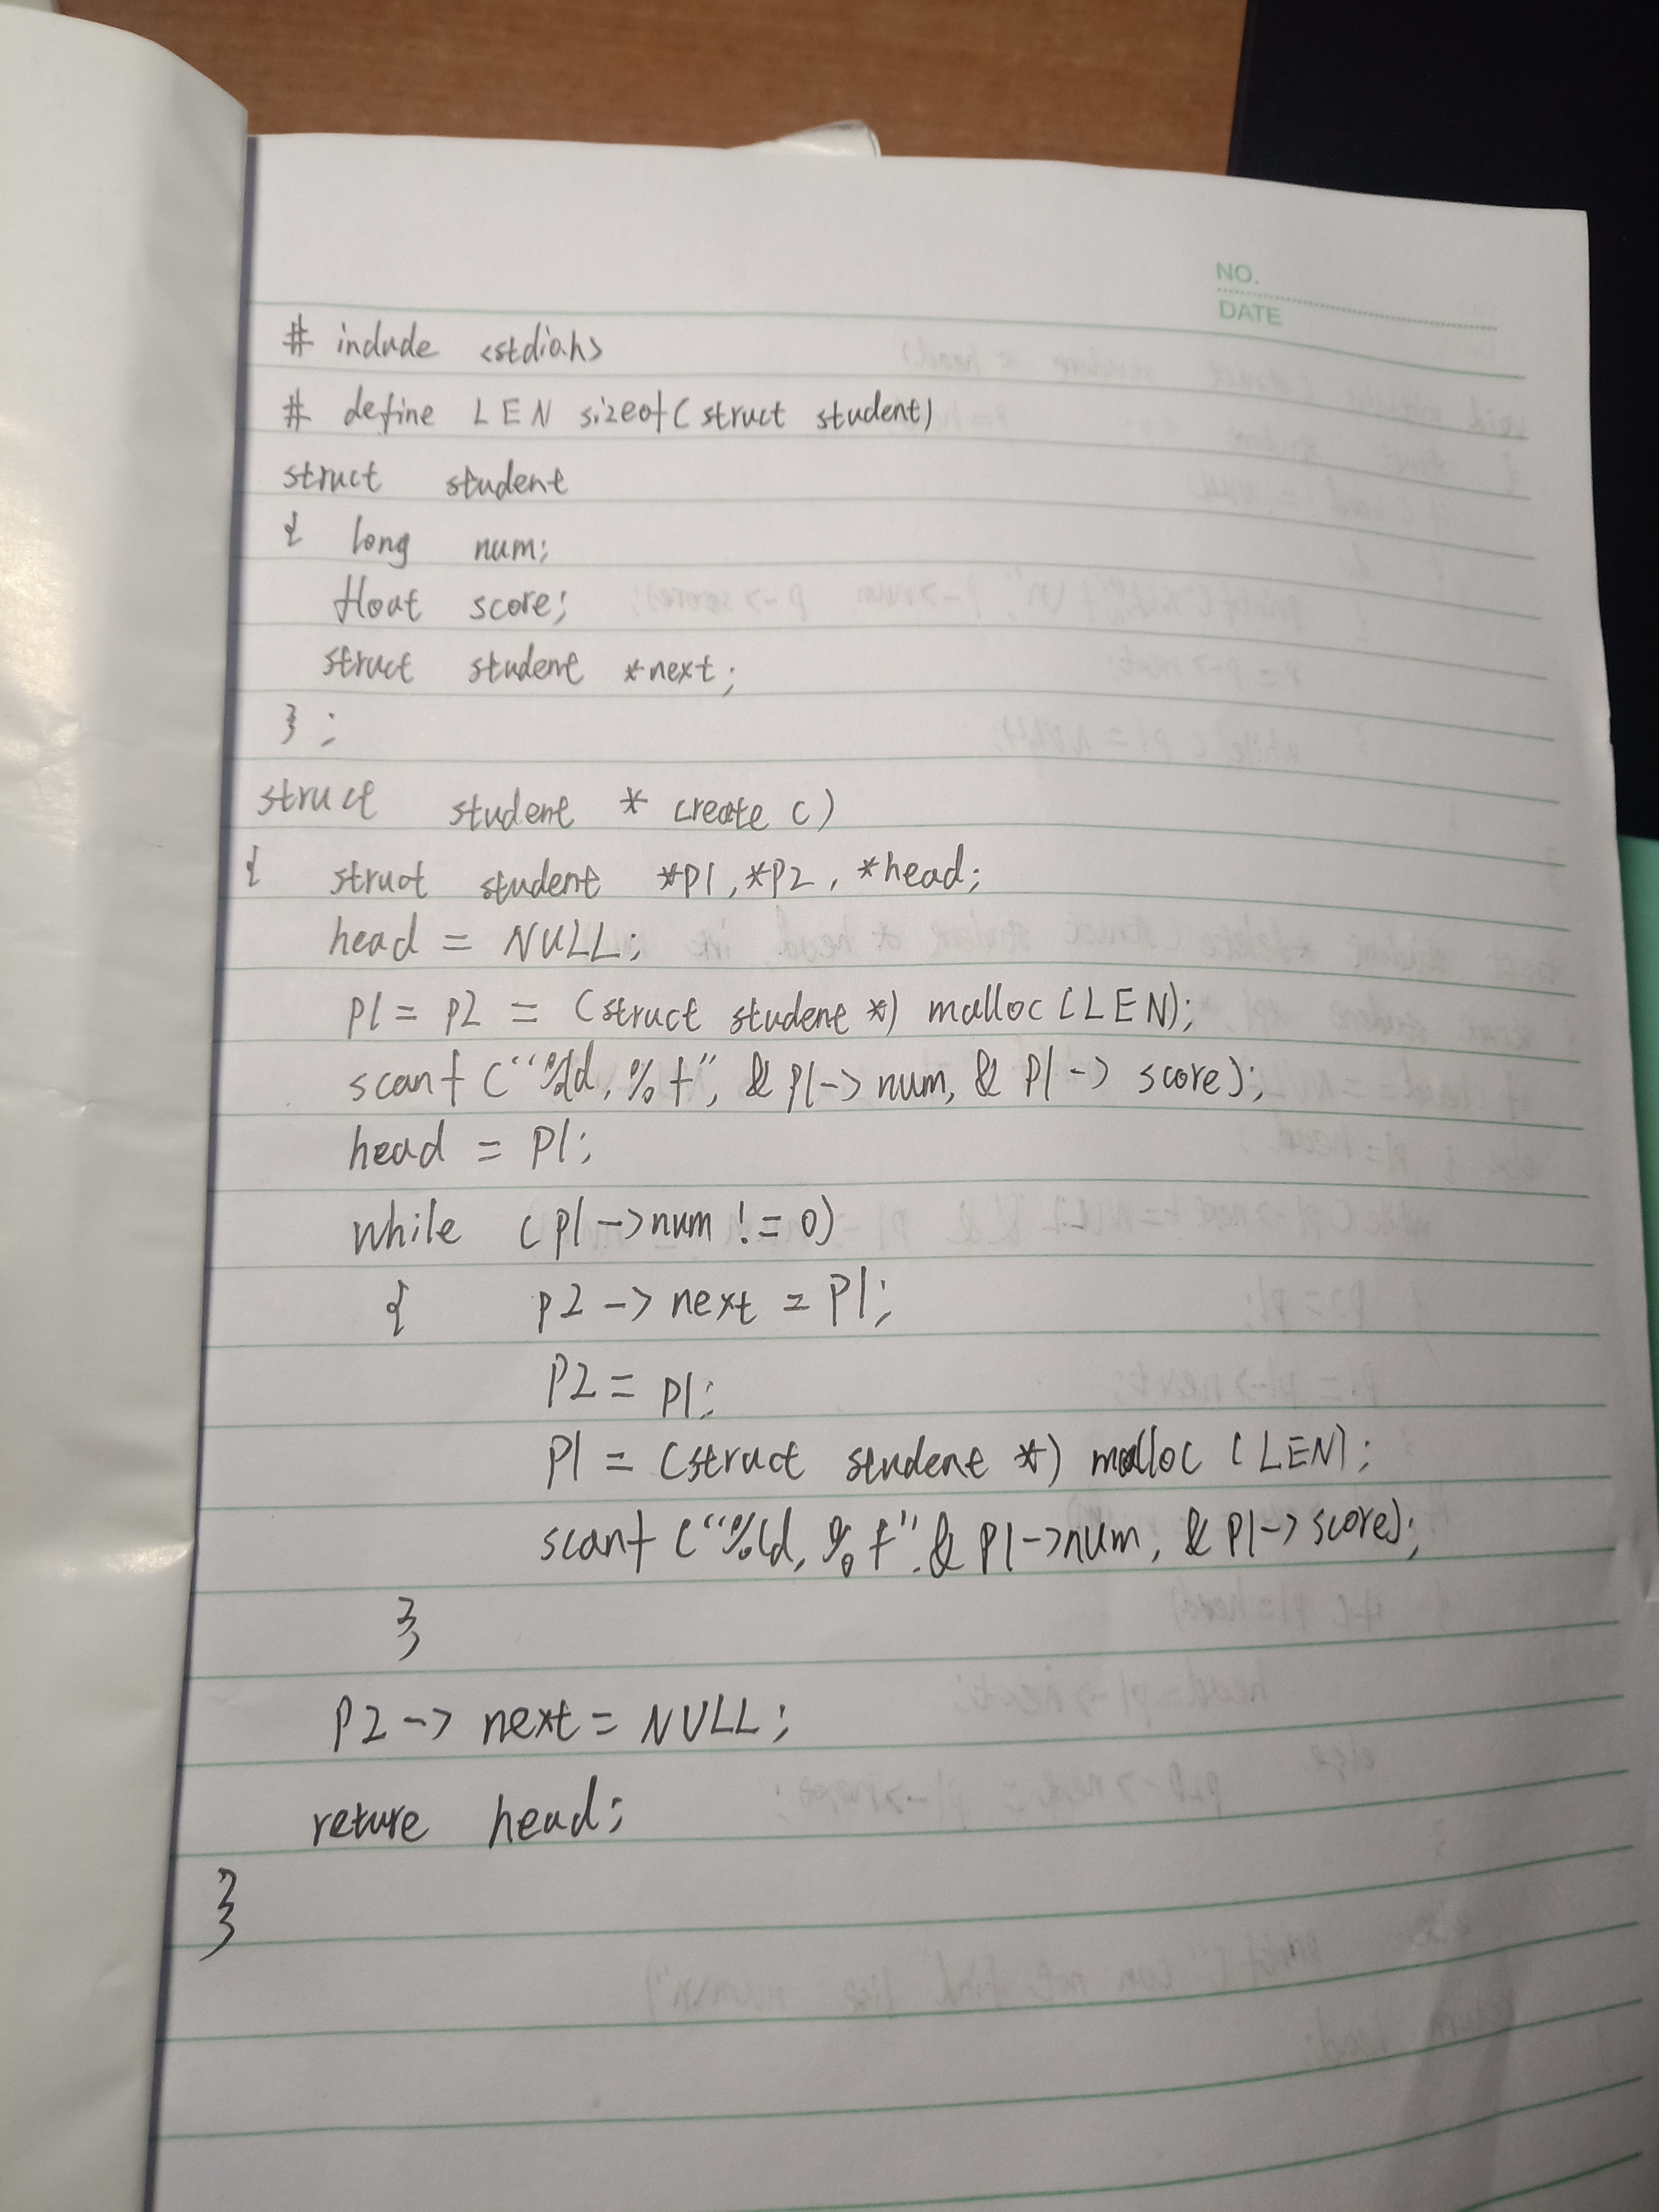 NO.
DATE
# include <stdioh>
# define LEN sizeof(struct student)
struct student
{ long num;
float score;
struct student *next;
};
struct student * create ()
{ struct student *p1, *p2, *head;
head = NULL;
p1 = p2 = (struct student *) malloc (LEN);
scanf ("%ld, %f", & p1-> num, & p1-> score);
head = p1;
while (p1->num != 0)
{ p2 -> next = p1;
p2 = p1;
p1 = (struct student *) malloc (LEN);
scanf ("%ld, %f", & p1->num, & p1-> score);
}
p2 -> next = NULL;
returе head;
}